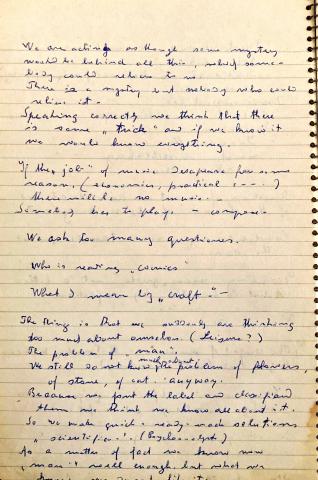 We are acting as though some mystery
would be behind all this, which some-
body could relieve to us.
There is a mystery but nobody who could
relieve it.
Speaking correctly we think that there
is some "trick" and if we know it
we would know everything.
If the "job" of music disapear for some
reason, (economics, practical ....)
then will be no music.
Somebody has to play - compose.
We ask too many questiones.
Who is reading "comics"
What I mean by "craft". -
The thing is that we suddenly are thinking
too much about ourselves. (Leisure?)
The problem of "man".
We still do not know much about the problem of flowers,
of stone, of cat. anyway.
Because we put the label and classified
them we think we know all about it.
So we make quick - ready-made solutions
"scientific". (Psychoanalyst)
As a matter of fact we know now
"man" well enough but what we